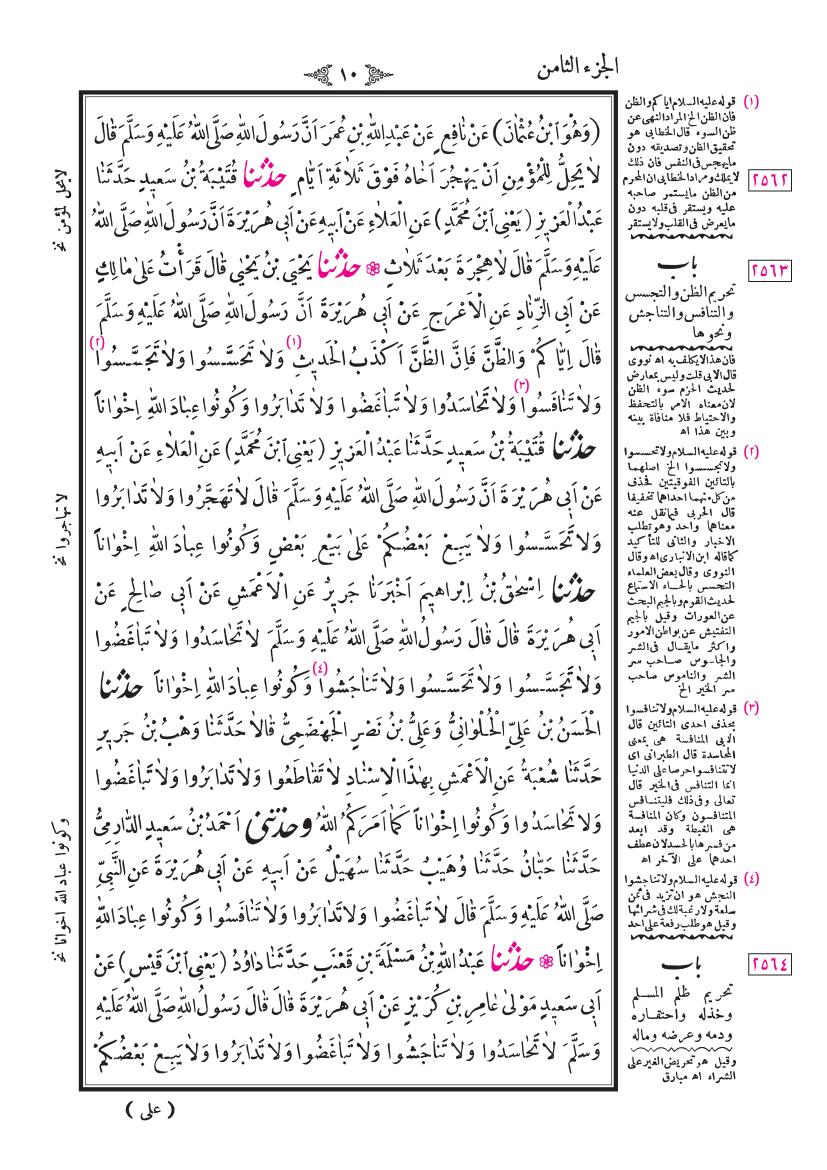 الجزء الثامن
١٠
(وَهُوَ ابْنُ عُثْمَانَ) عَنْ نَافِعٍ عَنْ عَبْدِاللهِ بْنِ عُمَرَ اَنَّ رَسُولَ اللهِ صَلَّى اللهُ عَلَيْهِ وَسَلَّمَ قَالَ
لَا يَحِلُّ لِلْمُؤْمِنِ اَنْ يَهْجُرَ اَخَاهُ فَوْقَ ثَلَاثَةِ اَيَّامٍ حَدَّثَنَا قُتَيْبَةُ بْنُ سَعِيدٍ حَدَّثَنَا
عَبْدُ الْعَزِيزِ (يَعْنِى ابْنَ مُحَمَّدٍ) عَنِ الْعَلَاءِ عَنْ اَبِيهِ عَنْ اَبِى هُرَيْرَةَ اَنَّ رَسُولَ اللهِ صَلَّى اللهُ
عَلَيْهِ وَسَلَّمَ قَالَ لَا هِجْرَةَ بَعْدَ ثَلَاثٍ ❁ حَدَّثَنَا يَحْيَى بْنُ يَحْيَى قَالَ قَرَأْتُ عَلَى مَالِكٍ
عَنْ اَبِى الزِّنَادِ عَنِ الْاَعْرَجِ عَنْ اَبِى هُرَيْرَةَ اَنَّ رَسُولَ اللهِ صَلَّى اللهُ عَلَيْهِ وَسَلَّمَ
قَالَ اِيَّاكُمْ وَالظَّنَّ فَاِنَّ الظَّنَّ اَكْذَبُ الْحَدِيثِ (١) وَلَا تَحَسَّسُوا وَلَا تَجَسَّسُوا (٢)
وَلَا تَنَافَسُوا (٣) وَلَا تَحَاسَدُوا وَلَا تَبَاغَضُوا وَلَا تَدَابَرُوا وَكُونُوا عِبَادَ اللهِ اِخْوَاناً
حَدَّثَنَا قُتَيْبَةُ بْنُ سَعِيدٍ حَدَّثَنَا عَبْدُ الْعَزِيزِ (يَعْنِى ابْنَ مُحَمَّدٍ) عَنِ الْعَلَاءِ عَنْ اَبِيهِ
عَنْ اَبِى هُرَيْرَةَ اَنَّ رَسُولَ اللهِ صَلَّى اللهُ عَلَيْهِ وَسَلَّمَ قَالَ لَا تَهَجَّرُوا وَلَا تَدَابَرُوا
وَلَا تَحَسَّسُوا وَلَا يَبِعْ بَعْضُكُمْ عَلَى بَيْعِ بَعْضٍ وَكُونُوا عِبَادَ اللهِ اِخْوَاناً
حَدَّثَنَا اِسْحٰقُ بْنُ اِبْرَاهِيمَ اَخْبَرَنَا جَرِيرٌ عَنِ الْاَعْمَشِ عَنْ اَبِى صَالِحٍ عَنْ
اَبِى هُرَيْرَةَ قَالَ قَالَ رَسُولُ اللهِ صَلَّى اللهُ عَلَيْهِ وَسَلَّمَ لَا تَحَاسَدُوا وَلَا تَبَاغَضُوا
وَلَا تَجَسَّسُوا وَلَا تَحَسَّسُوا وَلَا تَنَاجَشُوا (٤) وَكُونُوا عِبَادَ اللهِ اِخْوَاناً حَدَّثَنَا
الْحَسَنُ بْنُ عَلِىٍّ الْحُلْوَانِىُّ وَعَلِىُّ بْنُ نَصْرٍ الْجَهْضَمِىُّ قَالَا حَدَّثَنَا وَهْبُ بْنُ جَرِيرٍ
حَدَّثَنَا شُعْبَةُ عَنِ الْاَعْمَشِ بِهٰذَا الْاِسْنَادِ لَا تَقَاطَعُوا وَلَا تَدَابَرُوا وَلَا تَبَاغَضُوا
وَلَا تَحَاسَدُوا وَكُونُوا اِخْوَاناً كَمَا اَمَرَكُمُ اللهُ وَحَدَّثَنِى اَحْمَدُ بْنُ سَعِيدٍ الدَّارِمِىُّ
حَدَّثَنَا حَبَّانُ حَدَّثَنَا وُهَيْبٌ حَدَّثَنَا سُهَيْلٌ عَنْ اَبِيهِ عَنْ اَبِى هُرَيْرَةَ عَنِ النَّبِىِّ
صَلَّى اللهُ عَلَيْهِ وَسَلَّمَ قَالَ لَا تَبَاغَضُوا وَلَا تَدَابَرُوا وَلَا تَنَافَسُوا وَكُونُوا عِبَادَ اللهِ
اِخْوَاناً ❁ حَدَّثَنَا عَبْدُ اللهِ بْنُ مَسْلَمَةَ بْنِ قَعْنَبٍ حَدَّثَنَا دَاوُدُ (يَعْنِى ابْنَ قَيْسٍ) عَنْ
اَبِى سَعِيدٍ مَوْلَى عَامِرِ بْنِ كُرَيْزٍ عَنْ اَبِى هُرَيْرَةَ قَالَ قَالَ رَسُولُ اللهِ صَلَّى اللهُ عَلَيْهِ
وَسَلَّمَ لَا تَحَاسَدُوا وَلَا تَنَاجَشُوا وَلَا تَبَاغَضُوا وَلَا تَدَابَرُوا وَلَا يَبِعْ بَعْضُكُمْ
(على)
(١) قوله عليه السلام اياكم والظن
فان الظن الخ المراد النهى عن
ظن السوء قال الخطابى هو
تحقيق الظن وتصديقه دون
ما يهجس فى النفس فان ذلك
لا يملك ومراد الخطابى ان المحرم
من الظن ما يستمر صاحبه
عليه ويستقر فى قلبه دون
ما يعرض فى القلب ولا يستقر
٢٥٦٢
٢٥٦٣
باب
تحريم الظن والتجسس
والتنافس والتناجش
ونحوها
فان هذا لا يكلف به اه نووى
قال الابى قلت وليس بمعارض
لحديث الحزم سوء الظن
لان معناه الامر بالتحفظ
والاحتياط فلا منافاة بينه
وبين هذا اه
(٢) قوله عليه السلام ولا تحسسوا
ولا تجسسوا الخ اصلهما
بالتائين الفوقيتين فحذف
من كل منهما احداهما تخفيفا
قال الحربى فيما نقل عنه
معناهما واحد وهو تطلب
الاخبار والثانى للتأكيد
كما قاله ابن الانبارى اه وقال
النووى وقال بعض العلماء
التحسس بالحاء الاستماع
لحديث القوم وبالجيم البحث
عن العورات وقيل بالجيم
التفتيش عن بواطن الامور
واكثر ما يقال فى الشر
والجاسوس صاحب سر
الشر والناموس صاحب
سر الخير الخ
(٣) قوله عليه السلام ولا تنافسوا
بحذف احدى التائين قال
الابى المنافسة هى بمعنى
المحاسدة قال الطبرانى اى
لا تتنافسوا حرصا على الدنيا
انما التنافس فى الخير قال
تعالى وفى ذلك فليتنافس
المتنافسون وكان المنافسة
هى الغبطة وقد ابعد
من فسرها بالحسد لان عطف
احدهما على الآخر اه
(٤) قوله عليه السلام ولا تناجشوا
النجش هو ان تزيد فى ثمن
سلعة ولا رغبة لك فى شرائها
وقيل هو طلب رفعة على احد
٢٥٦٤
باب
تحريم ظلم المسلم
وخذله واحتقاره
ودمه وعرضه وماله
وقيل هو تحريض الغير على
الشراء اه مبارق
لا يحل لمؤمن نخ
لا تهاجروا نخ
وكونوا عباد الله اخوانا نخ